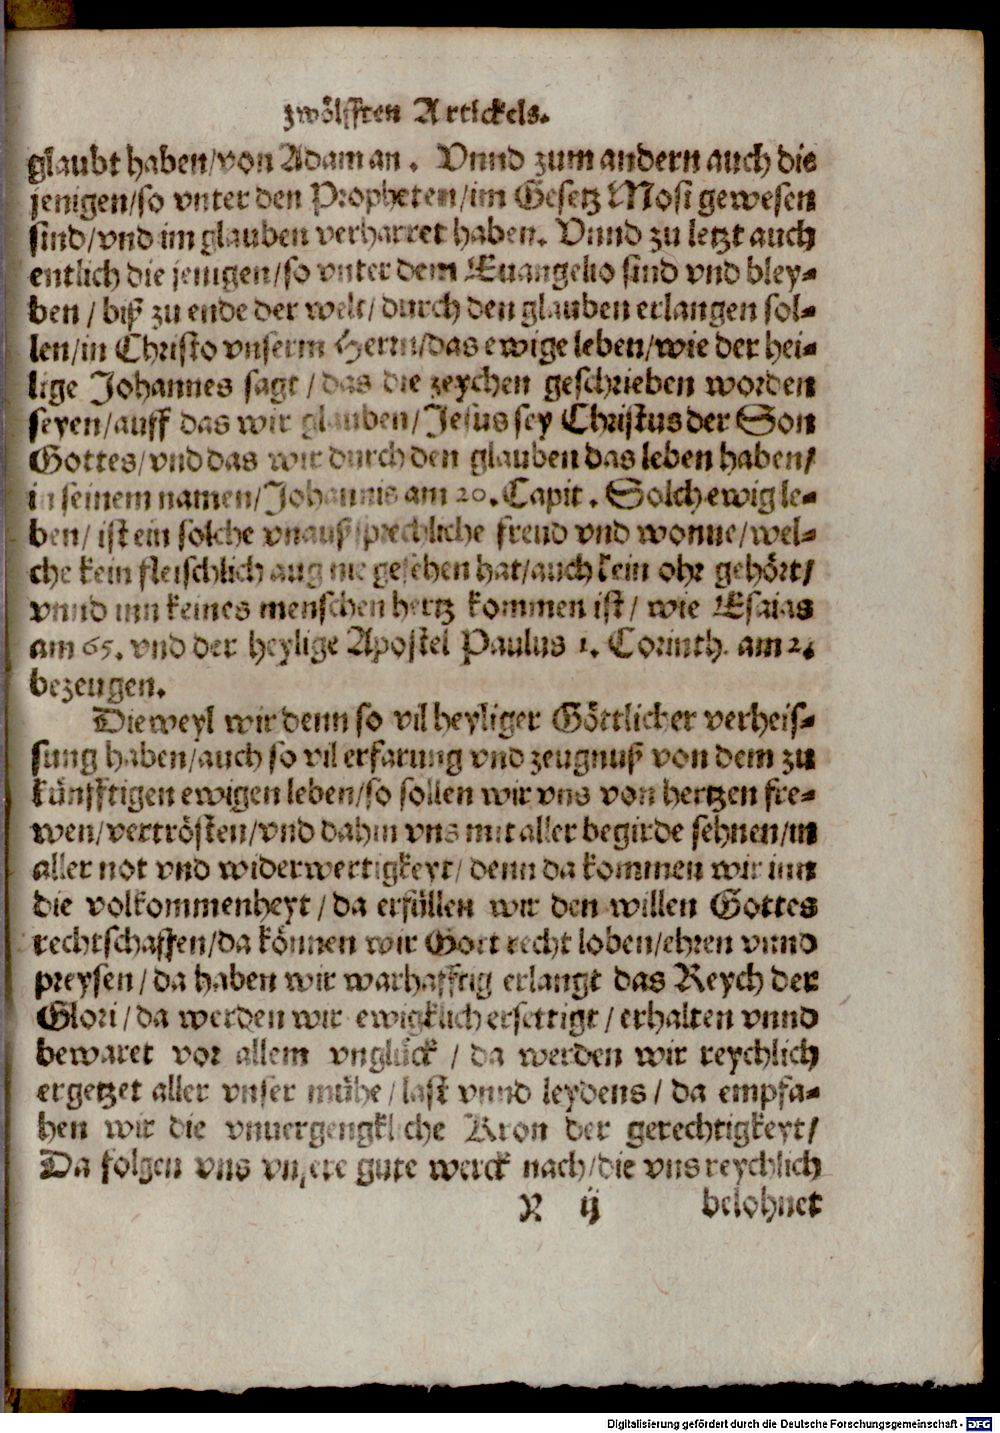 zwölfften Artickels.
glaubt haben/von Adam an. Vnnd zum andern auch die
jenigen/so vnter den Propheten/im Gesetz Mosi gewesen
sind/vnd im glauben verharret haben. Vnnd zu letzt auch
entlich die jenigen/so vnter dem Euangelio sind vnd bley-
ben / biß zu ende der welt/ durch den glauben erlangen sol-
len/in Christo vnserm Herrn/das ewige leben/wie der hei-
lige Johannes sagt / das die zeychen geschrieben worden
seyen/auff das wir glauben/Jesus sey Christus der Son
Gottes/vnd das wir durch den glauben das leben haben/
in seinem namen/Johannis am 20. Capit. Solch ewig le-
ben/ ist ein solche vnaußsprechliche freud vnd wonne/wel-
che kein fleischlich aug nie gesehen hat/auch kein ohr gehört/
vnnd inn keines menschen hertz kommen ist/ wie Esaias
am 65. vnd der heylige Apostel Paulus 1. Corinth. am 2.
bezeugen.
Dieweyl wir denn so vil heyliger Göttlicher verheis-
sung haben/auch so vil erfarung vnd zeugnuß von dem zu
künfftigen ewigen leben/so sollen wir vns von hertzen fre-
wen/vertrösten/vnd dahin vns mit aller begirde sehnen/in
aller not vnd widerwertigkeyt/ denn da kommen wir inn
die volkommenheyt / da erfüllen wir den willen Gottes
rechtschaffen/da können wir Gott recht loben/ehren vnnd
preysen / da haben wir warhafftig erlangt das Reych der
Glori / da werden wir ewigklich ersettigt / erhalten vnnd
bewaret vor allem vnglück / da werden wir reychlich
ergetzet aller vnser mühe / last vnnd leydens / da empfa-
hen wir die vnuergengkliche Kron der gerechtigkeyt/
Da folgen vns vnsere gute werck nach/die vns reychlich
R ij belohnet
Digitalisierung gefördert durch die Deutsche Forschungsgemeinschaft - DFG